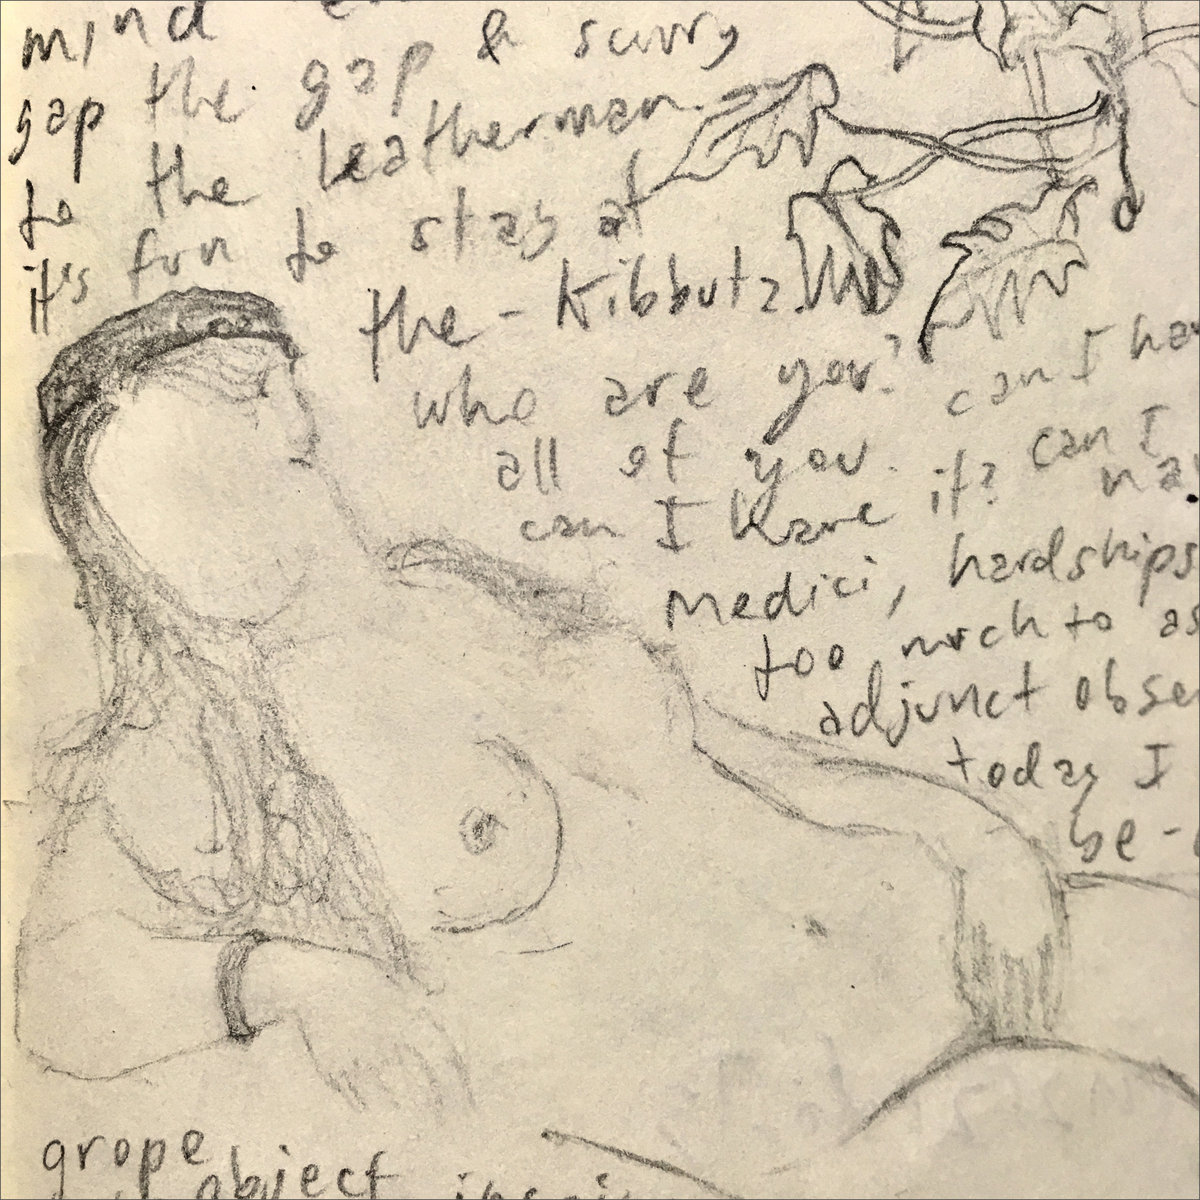 mind
gap the gap & scurry
to the leatherman.
it's fun to stay at
the - Kibbutz.
who are you? can I
all of you.
can I have it? can I
Medici, hardships
too much to
adjunct
today I
be -
grope
object